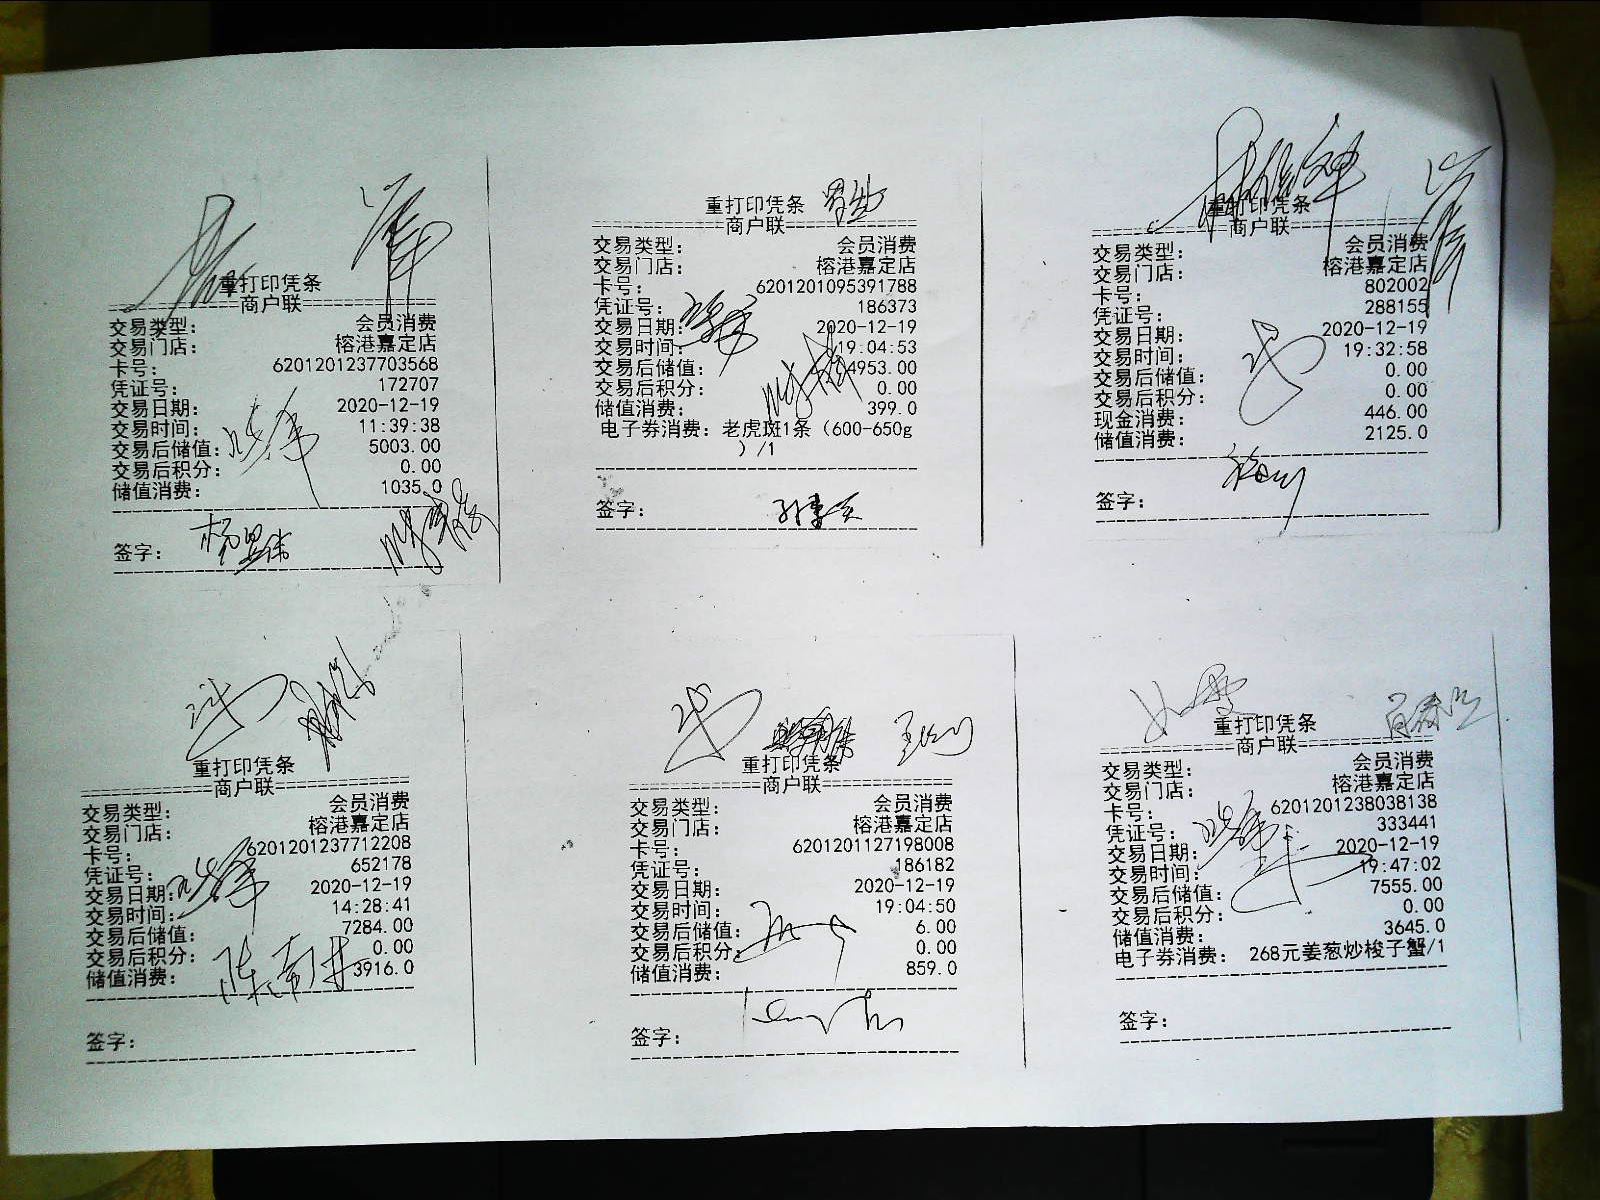 重打印凭条
商户联
交易类型： 会员消费
交易门店： 榕港嘉定店
卡号： 6201201237703568
凭证号： 172707
交易日期： 2020-12-19
交易时间： 11:39:38
交易后储值： 5003.00
交易后积分： 0.00
储值消费： 1035.0
签字：
重打印凭条
商户联
交易类型： 会员消费
交易门店： 榕港嘉定店
卡号： 6201201095391788
凭证号： 186373
交易日期： 2020-12-19
交易时间： 19:04:53
交易后储值： 4953.00
交易后积分： 0.00
储值消费： 399.0
电子券消费：老虎斑1条（600-650g
）/1
签字：
重打印凭条
商户联
交易类型： 会员消费
交易门店： 榕港嘉定店
卡号： 802002
凭证号： 288155
交易日期： 2020-12-19
交易时间： 19:32:58
交易后储值： 0.00
交易后积分： 0.00
现金消费： 446.00
储值消费： 2125.0
签字：
重打印凭条
商户联
交易类型： 会员消费
交易门店： 榕港嘉定店
卡号： 6201201237712208
凭证号： 652178
交易日期： 2020-12-19
交易时间： 14:28:41
交易后储值： 7284.00
交易后积分： 0.00
储值消费： 3916.0
签字：
重打印凭条
商户联
交易类型： 会员消费
交易门店： 榕港嘉定店
卡号： 6201201127198008
凭证号： 186182
交易日期： 2020-12-19
交易时间： 19:04:50
交易后储值： 6.00
交易后积分： 0.00
储值消费： 859.0
签字：
重打印凭条
商户联
交易类型： 会员消费
交易门店： 榕港嘉定店
卡号： 6201201238038138
凭证号： 333441
交易日期： 2020-12-19
交易时间： 19:47:02
交易后储值： 7555.00
交易后积分： 0.00
储值消费： 3645.0
电子券消费： 268元姜葱炒梭子蟹/1
签字：